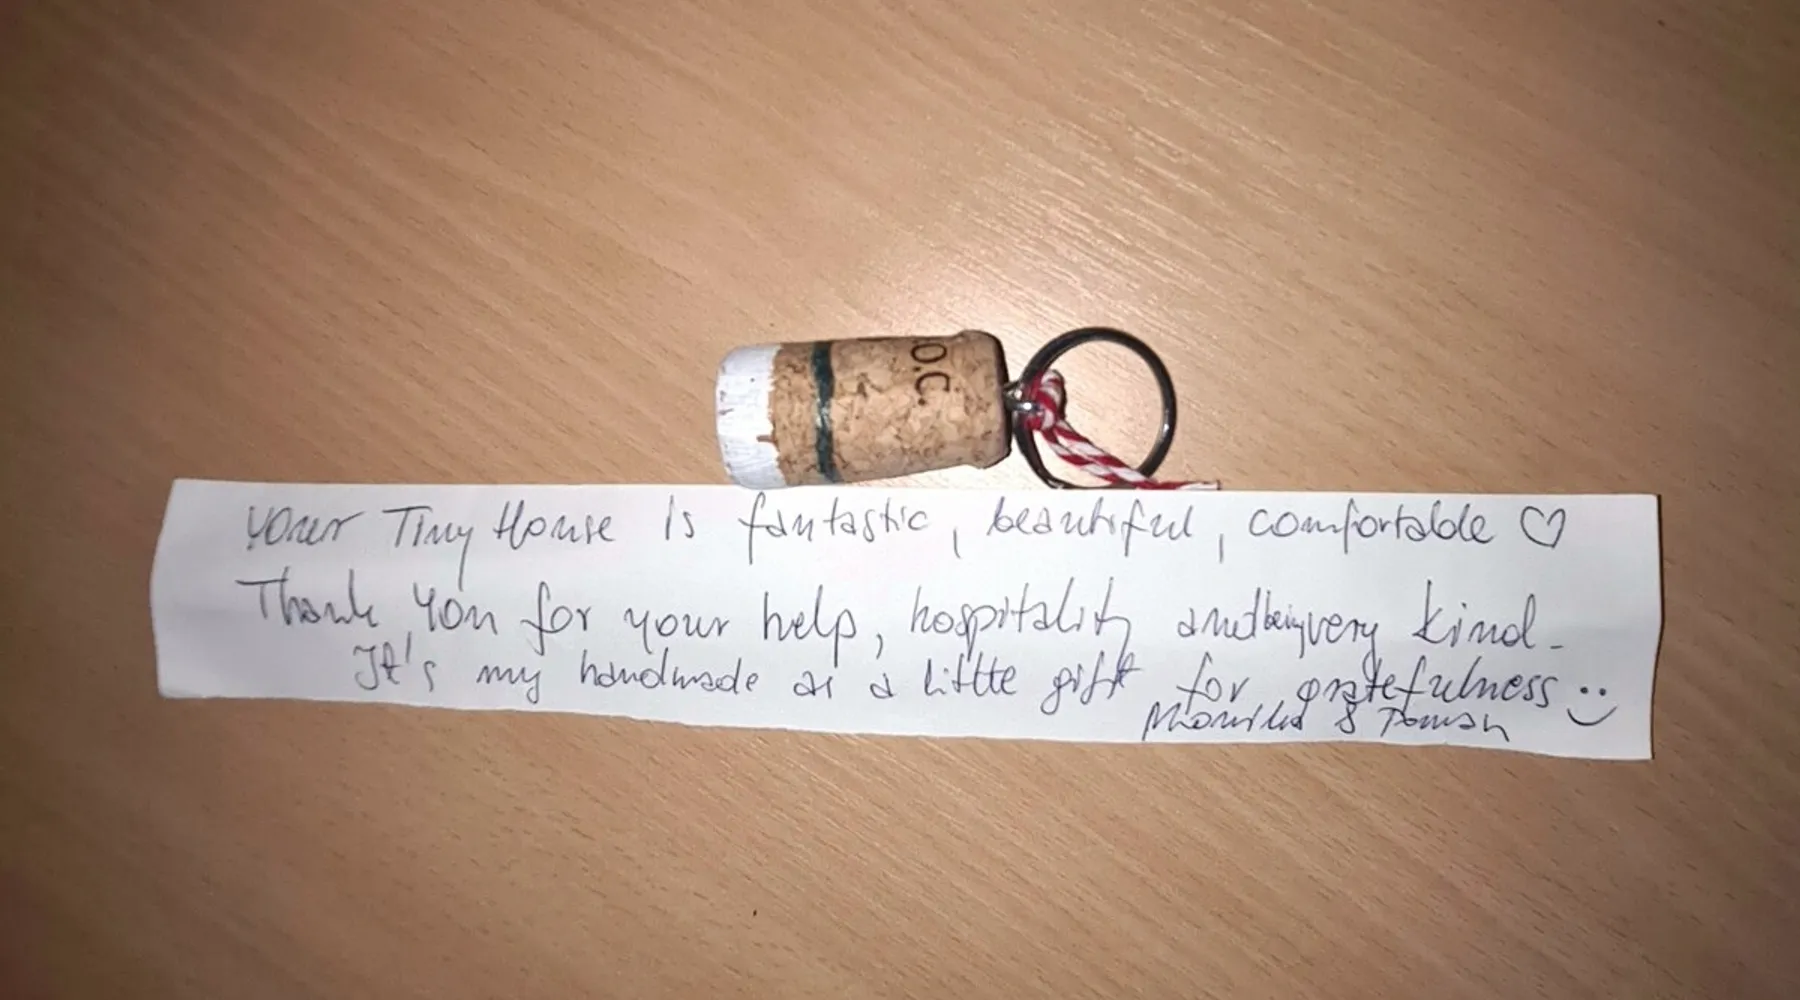 O.C.
your Tiny House is fantastic, beautiful, comfortable ♡
Thank you for your help, hospitality and being very kind.
It's my handmade as a little gift for gratefulness :)
Monika & Roman